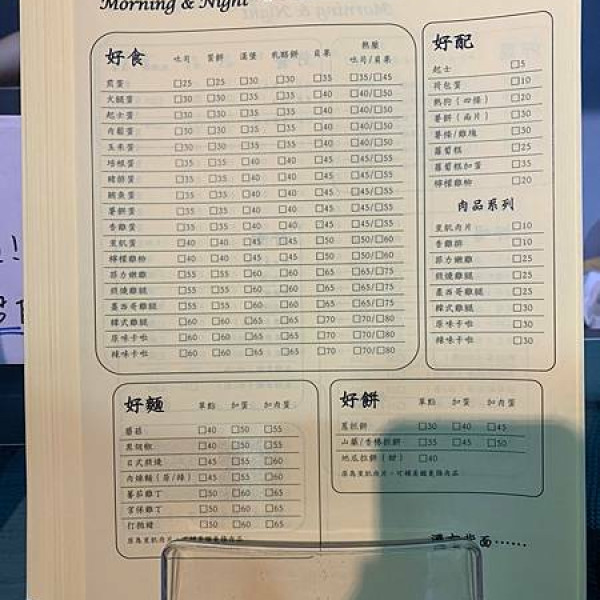 Morning & Night
好食 吐司 蛋餅 漢堡 乳酪餅 貝果 熱壓吐司/貝果
煎蛋 □25 □25 □30 □30 □35 □35/□45
火腿蛋 □30 □30 □35 □35 □40 □40/□50
起士蛋 □30 □30 □35 □35 □40 □40/□50
肉鬆蛋 □30 □30 □35 □35 □40 □40/□50
玉米蛋 □30 □30 □35 □35 □40 □40/□50
培根蛋 □35 □35 □40 □40 □45 □45/□55
豬排蛋 □35 □35 □40 □40 □45 □45/□55
鮪魚蛋 □35 □35 □40 □40 □45 □45/□55
薯餅蛋 □35 □35 □40 □40 □45 □45/□55
香雞蛋 □35 □35 □40 □40 □45 □45/□55
里肌蛋 □40 □40 □45 □45 □50 □50/□60
檸檬雞柳 □40 □40 □45 □45 □50 □50/□60
菲力嫩雞 □55 □55 □60 □60 □65 □65/□75
照燒雞腿 □55 □55 □60 □60 □65 □65/□75
墨西哥雞腿 □55 □55 □60 □60 □65 □65/□75
韓式雞腿 □60 □60 □65 □65 □70 □70/□80
原味卡啦 □60 □60 □65 □65 □70 □70/□80
辣味卡啦 □60 □60 □65 □65 □70 □70/□80
好配
起士 □5
荷包蛋 □10
熱狗(四條) □20
薯餅(兩片) □30
薯條/雞塊 □30
蘿蔔糕 □25
蘿蔔糕加蛋 □35
檸檬雞柳 □20
肉品系列
里肌肉片 □10
香雞排 □10
菲力嫩雞 □25
照燒雞腿 □25
墨西哥雞腿 □25
韓式雞腿 □30
原味卡啦 □30
辣味卡啦 □30
好麵 單點 加蛋 加肉蛋
蘑菇 □40 □50 □55
黑胡椒 □40 □50 □55
日式照燒 □40 □50 □55
肉燥麵(原/辣) □45 □55 □60
蕃茄雞丁 □50 □60 □65
宮保雞丁 □50 □60 □65
打拋豬 □50 □60 □65
好餅 單點 加蛋 加肉蛋
蔥抓餅 □30 □40 □45
山藥/香椿抓餅 □35 □45 □50
地瓜抓餅(甜) □40
還有背面⋯⋯